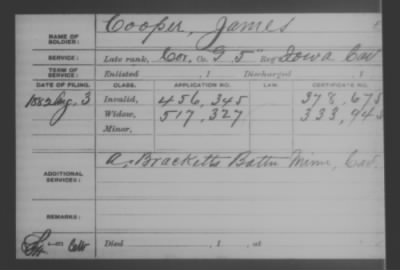 Cooper, James
NAME OF SOLDIER:
SERVICE: Late rank, Cor. Co. G, 5" Reg Iowa Cav
TERM OF SERVICE: Enlisted , 1 Discharged , 1
DATE OF FILING. CLASS. APPLICATION NO. LAW. CERTIFICATE NO.
1882 Aug. 3 Invalid, 456,345 378,675
Widow, 517,327 333,943
Minor,
A, Bracketts Battn Minn, Cav.
ADDITIONAL SERVICES:
REMARKS:
Died , 1 , at